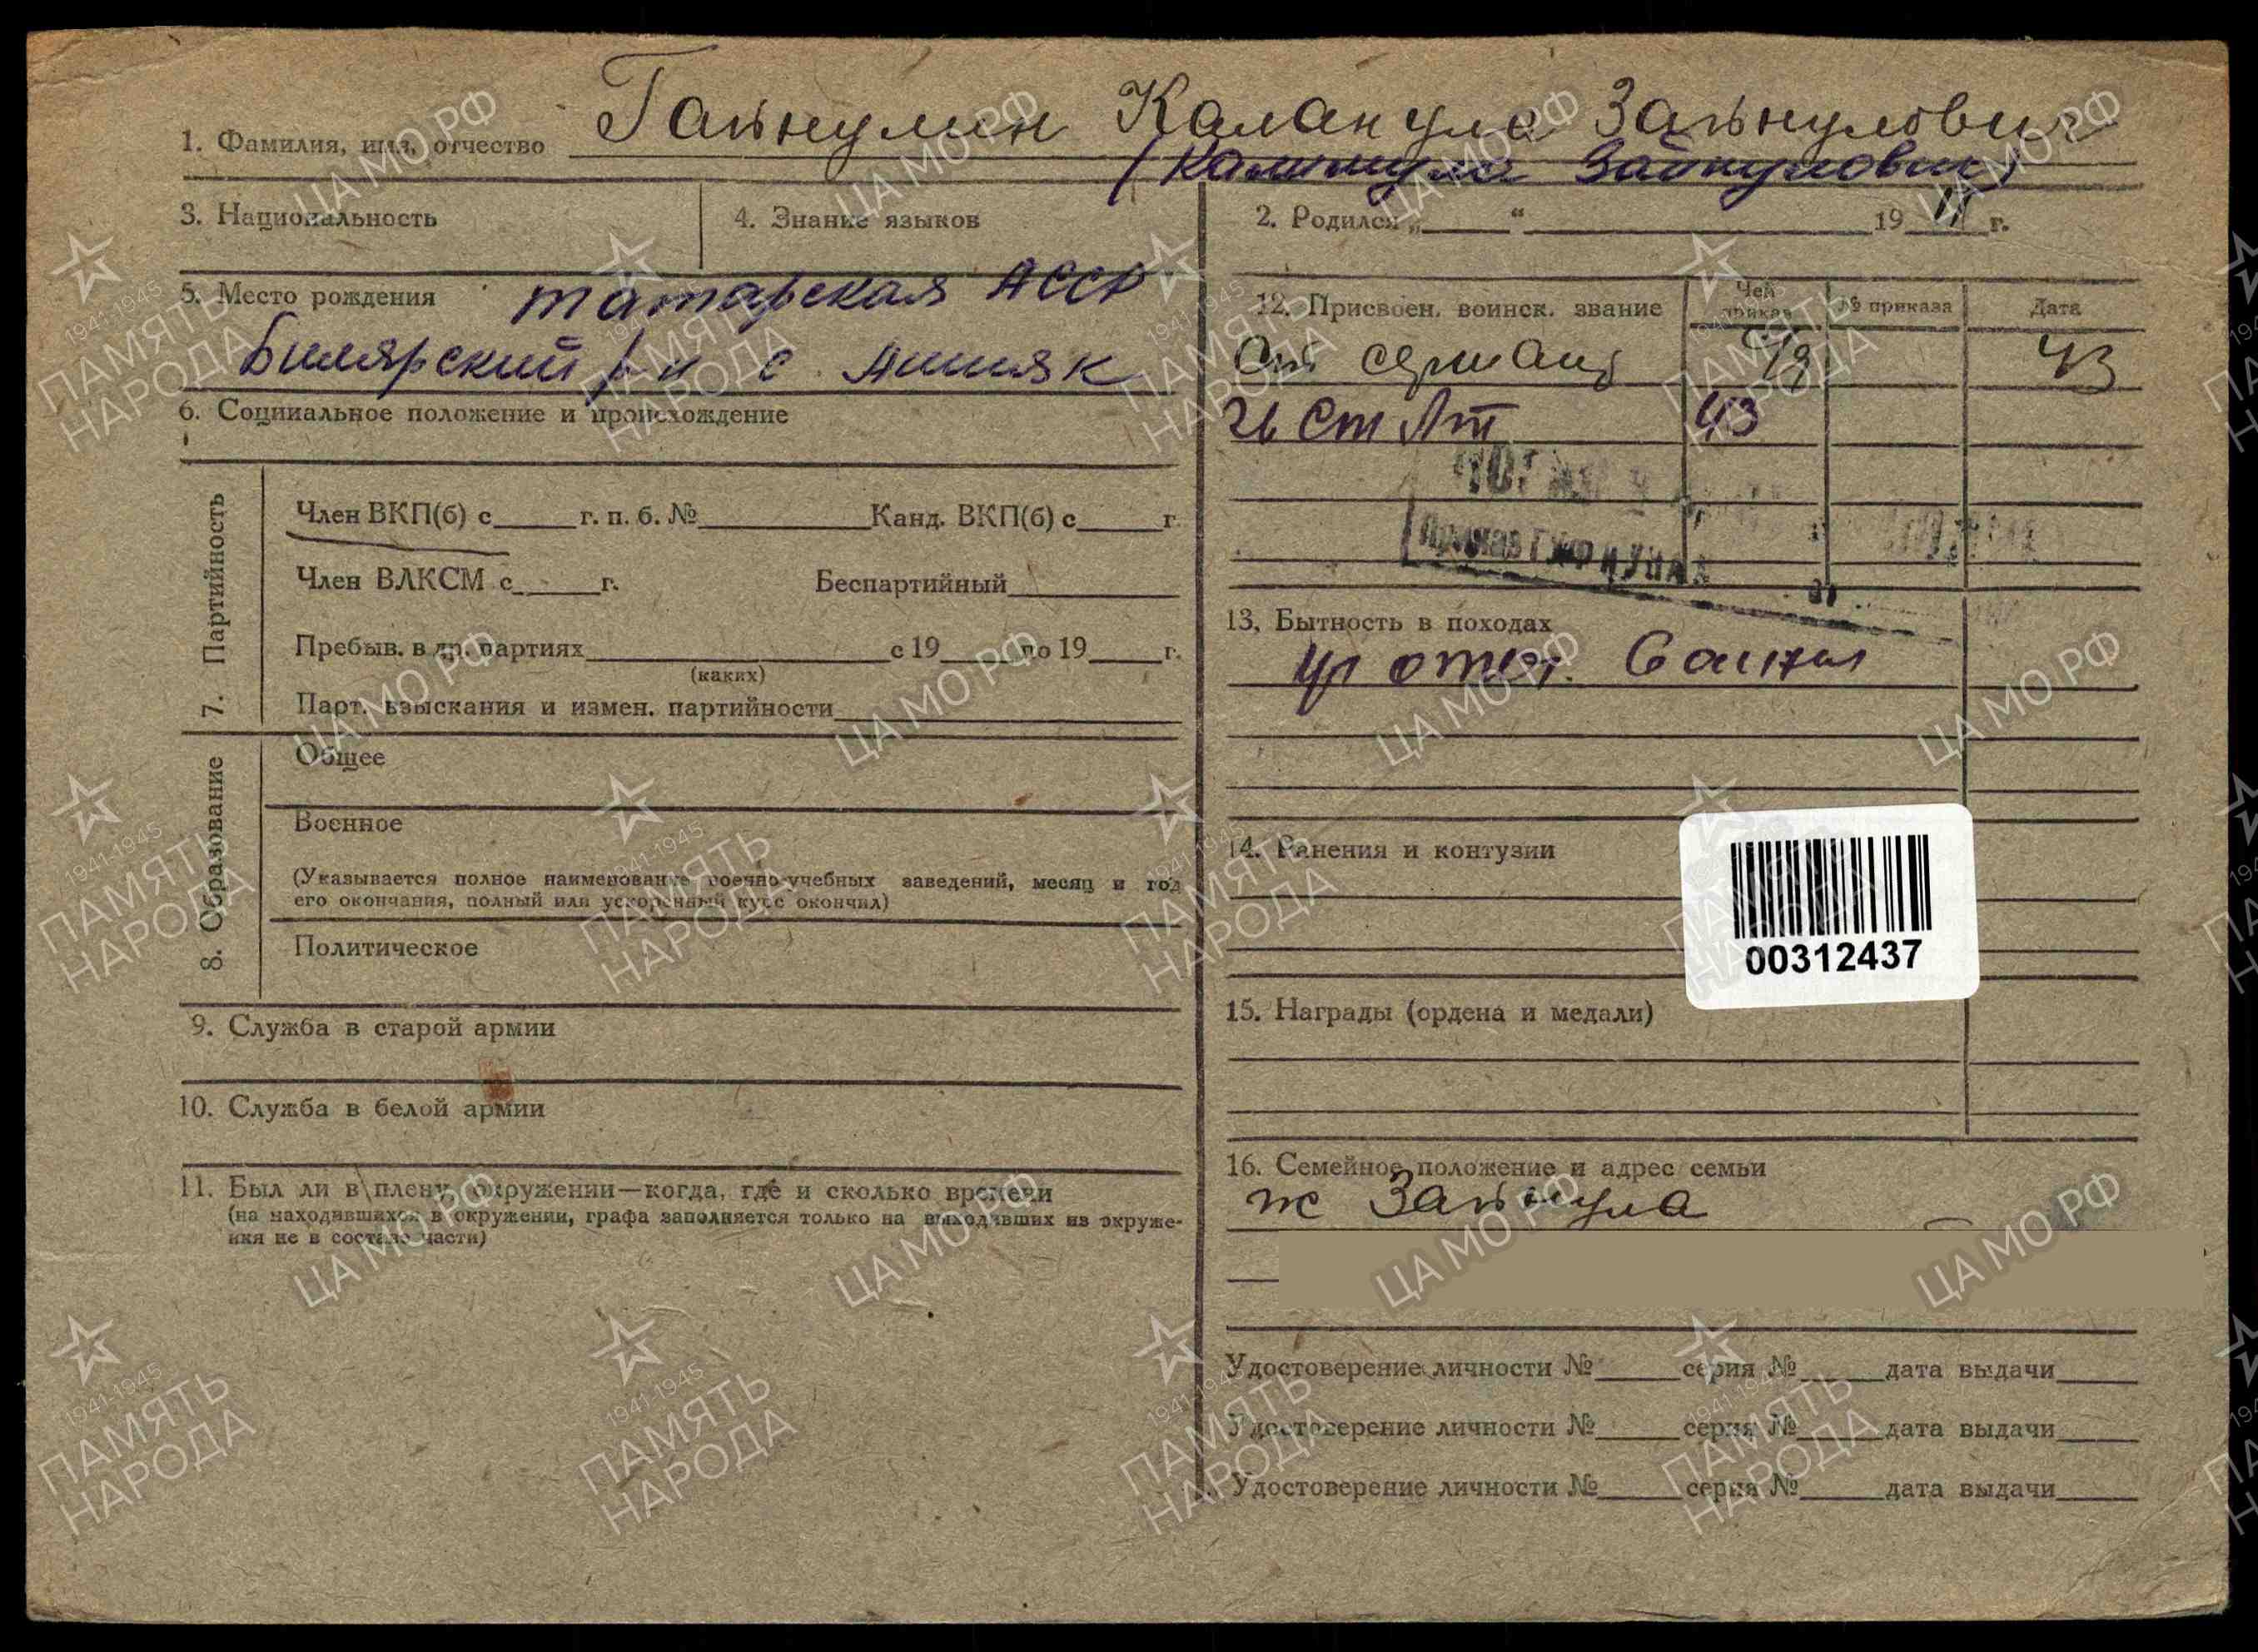 1. Фамилия, имя, отчество Гайнулин Каланула Зайнулович
(Калимула Зайнулович)
3. Национальность
4. Знание языков
2. Родился „ “ 19 11 г.
5. Место рождения Татарская АССР
Билярский р-н с
6. Социиальное положение и происхождение
7. Партийность
Член ВКП(б) с г. п. б. № Канд. ВКП(б) с г.
Член ВЛКСМ с г. Беспартийный
Пребыв. в др. партиях с 19 по 19 г.
(каких)
Парт. взыскания и измен. партийности
8. Образование
Общее
Военное
(Указывается полное наименование военно-учебных заведений, месяц и год
его окончания, полный или ускоренный курс окончил)
Политическое
9. Служба в старой армии
10. Служба в белой армии
11. Был ли в плену, окружении—когда, где и сколько времени
(на находившихся в окружении, графа заполняется только на выходивших из окруже-
ния не в составе части)
12. Присвоен. воинск. звание
Чей приказ
№ приказа
Дата
Ст сержант 43
Ст Лт 43
13. Бытность в походах
отеч. война
14. Ранения и контузии
00312437
15. Награды (ордена и медали)
16. Семейное положение и адрес семьи
ж Зайнула
Удостоверение личности № серия № дата выдачи
Удостоверение личности № серия № дата выдачи
Удостоверение личности № серия № дата выдачи
ЦА МО РФ
1941-1945
ПАМЯТЬ
НАРОДА